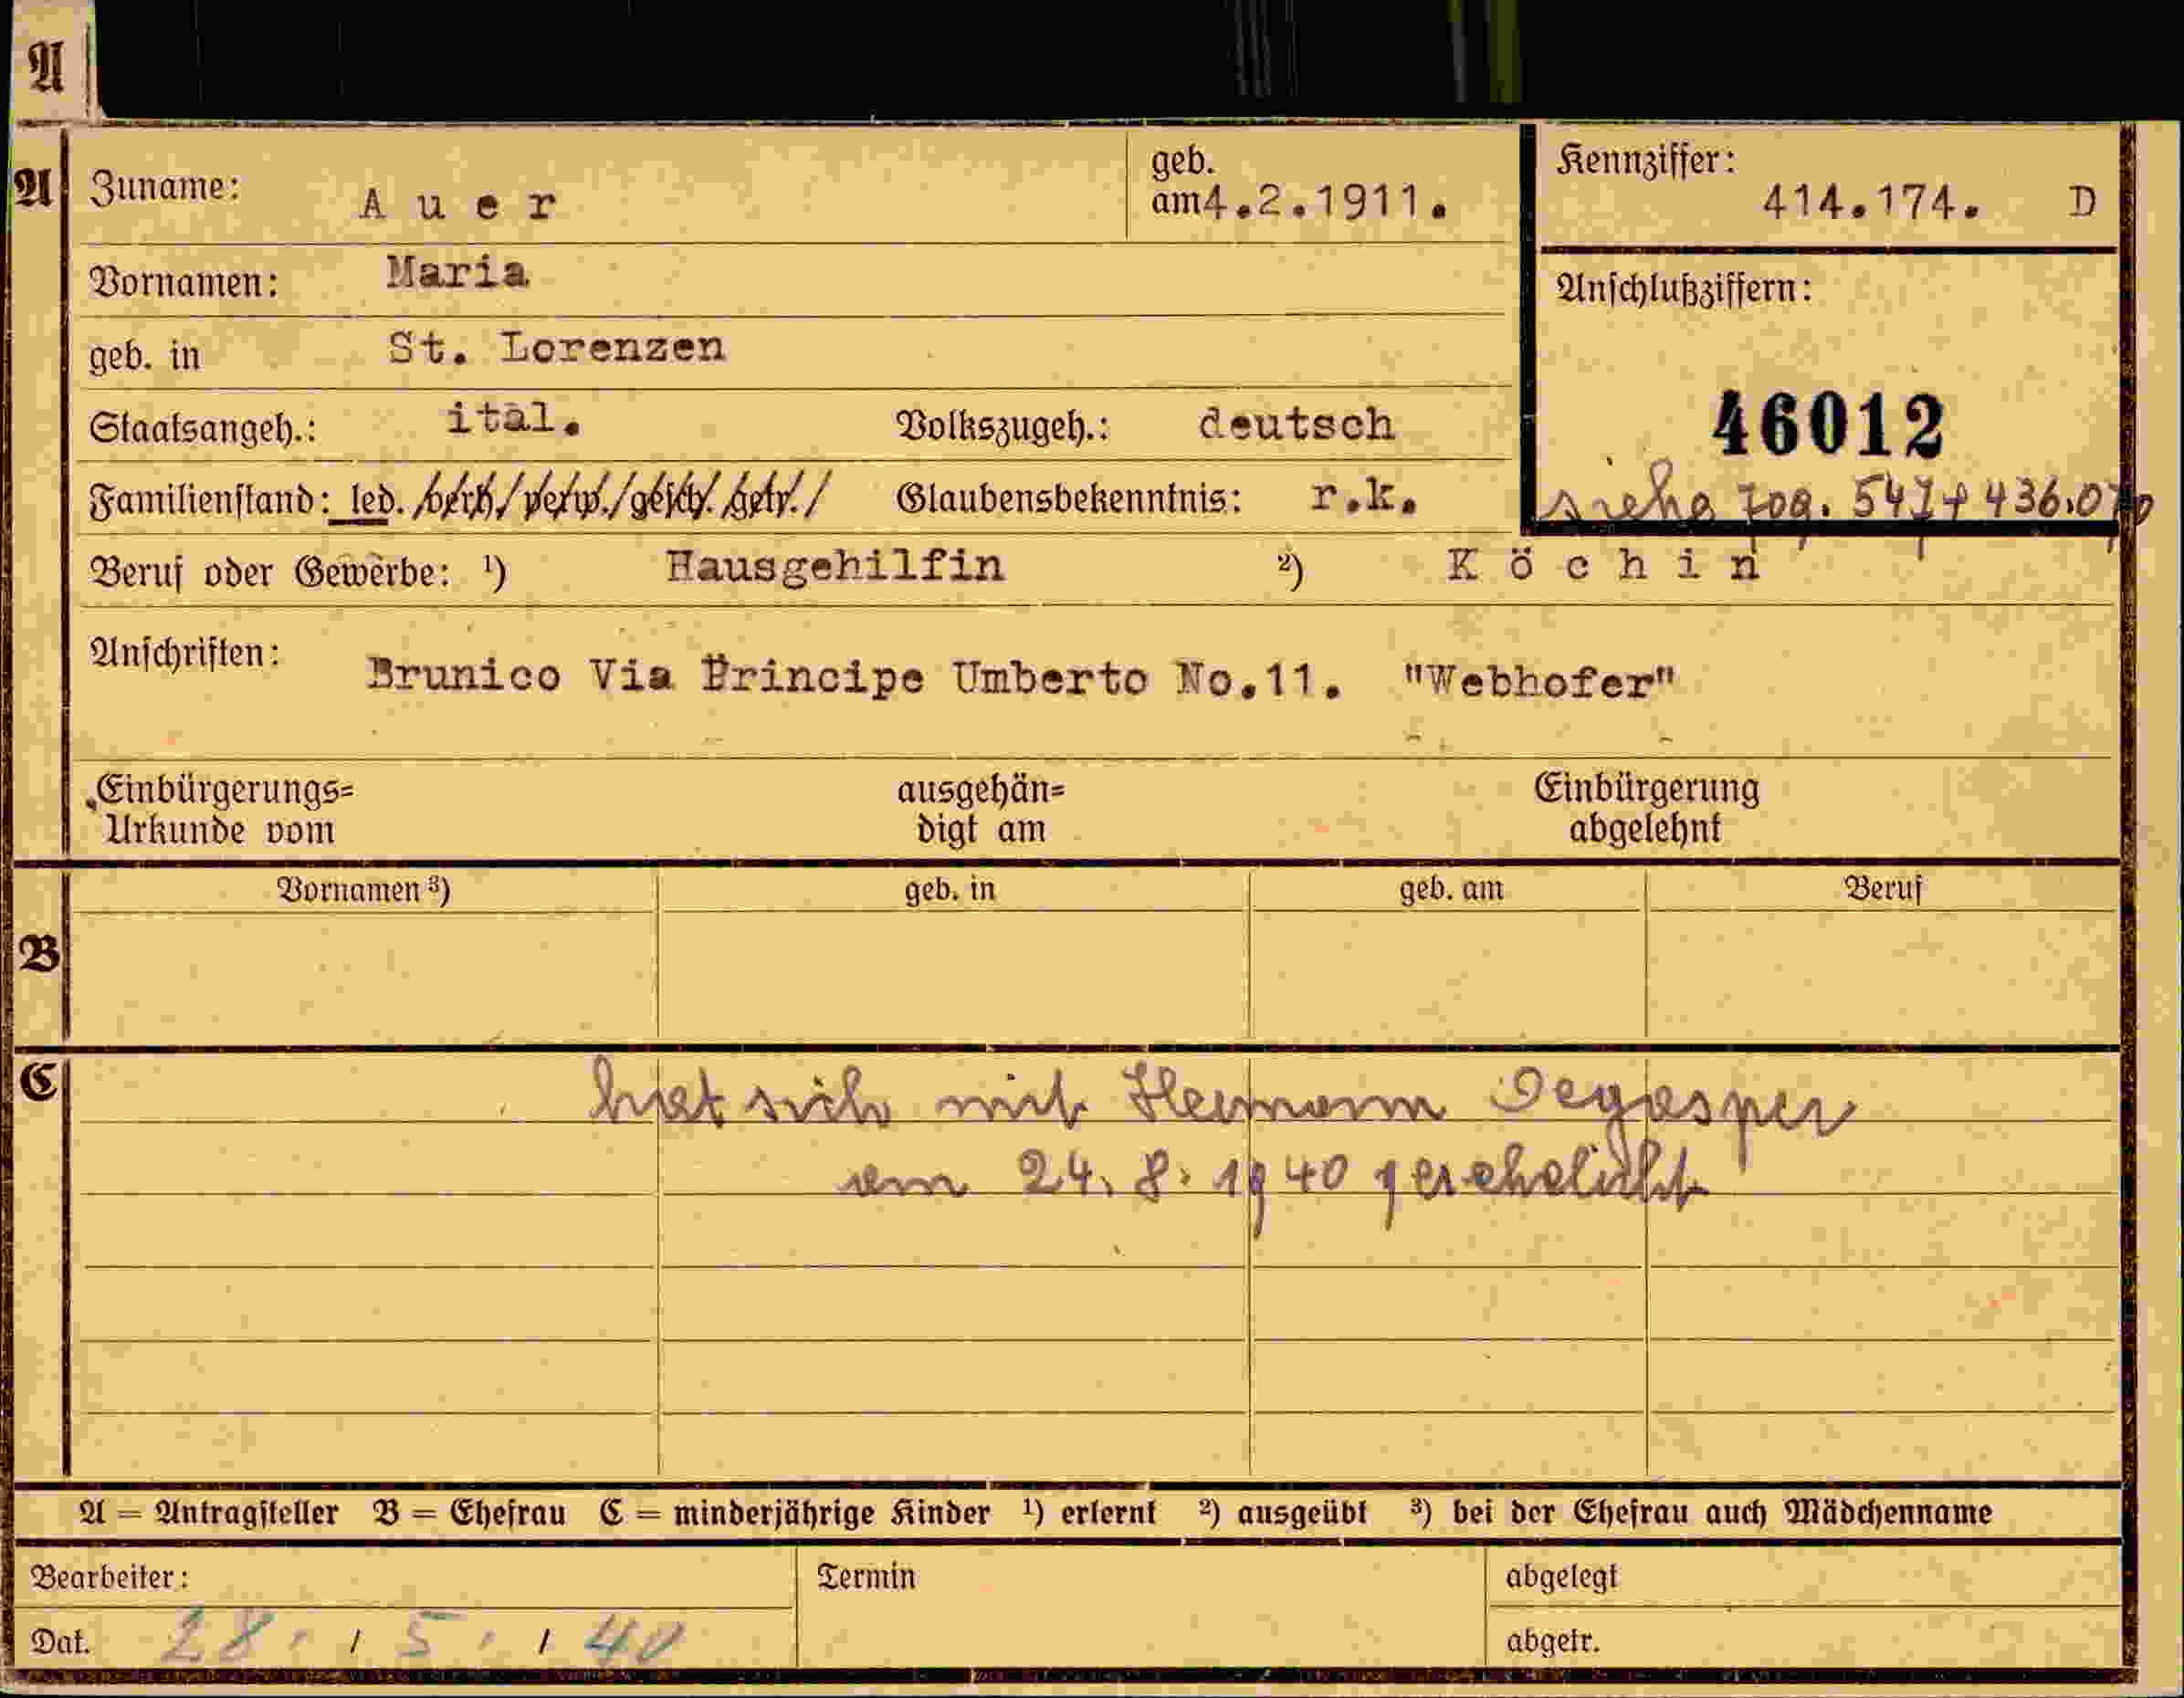 A
A Zuname: Auer geb. am 4.2.1911. Kennziffer: 414.174. D
Vornamen: Maria
Anschlußziffern:
geb. in St. Lorenzen
46012
Staatsangeh.: ital. Volkszugeh.: deutsch
siehe 436.070
Familienstand: led./verh./verw./gesch./getr./ Glaubensbekenntnis: r.k.
Beruf oder Gewerbe: ¹) Hausgehilfin ²) Köchin
Anschriften: Brunico Via Principe Umberto No.11. "Webhofer"
Einbürgerungs= ausgehän= Einbürgerung
Urkunde vom digt am abgelehnt
Vornamen ³) geb. in geb. am Beruf
B
C hat sich mit Hermann Degasper
am 24.8.1940 verehelicht
A = Antragsteller B = Ehefrau C = minderjährige Kinder ¹) erlernt ²) ausgeübt ³) bei der Ehefrau auch Mädchenname
Bearbeiter: Termin abgelegt
Dat. 28. / 5. / 40 abgetr.